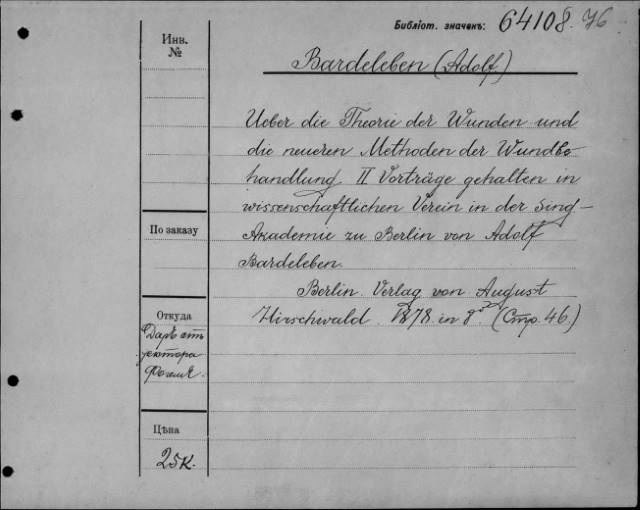 Библіот. значекъ: 64108. 76
Инв.
№
Bardeleben (Adolf.)
Ueber die Theorie der Wunden und
die neueren Methoden der Wundbe-
handlung II Vorträge gehalten in
wissenschaftlichen Verein in der Sing-
Akademie zu Berlin von Adolf
Bardeleben.
Berlin. Verlag von August
Hirschwald. 1878 in 8° (Стр. 46.)
По заказу
Откуда
Даръ отъ
Цѣна
25к.